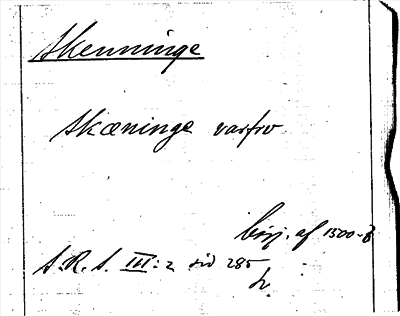 Skenninge
Skæninge varfrv
börj. af 1500-t
S.R.S. III:2 sid 285